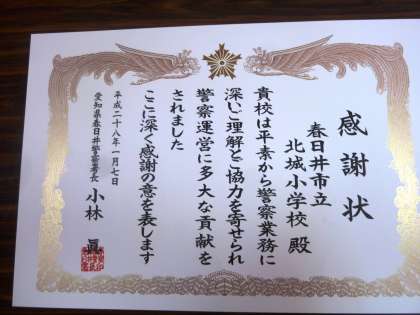 感謝状
春日井市立
北城小学校 殿
貴校は平素から警察業務に
深いご理解とご協力を寄せられ
警察運営に多大な貢献を
されました
ここに深く感謝の意を表します
平成二十八年一月七日
愛知県春日井警察署長 小林 眞